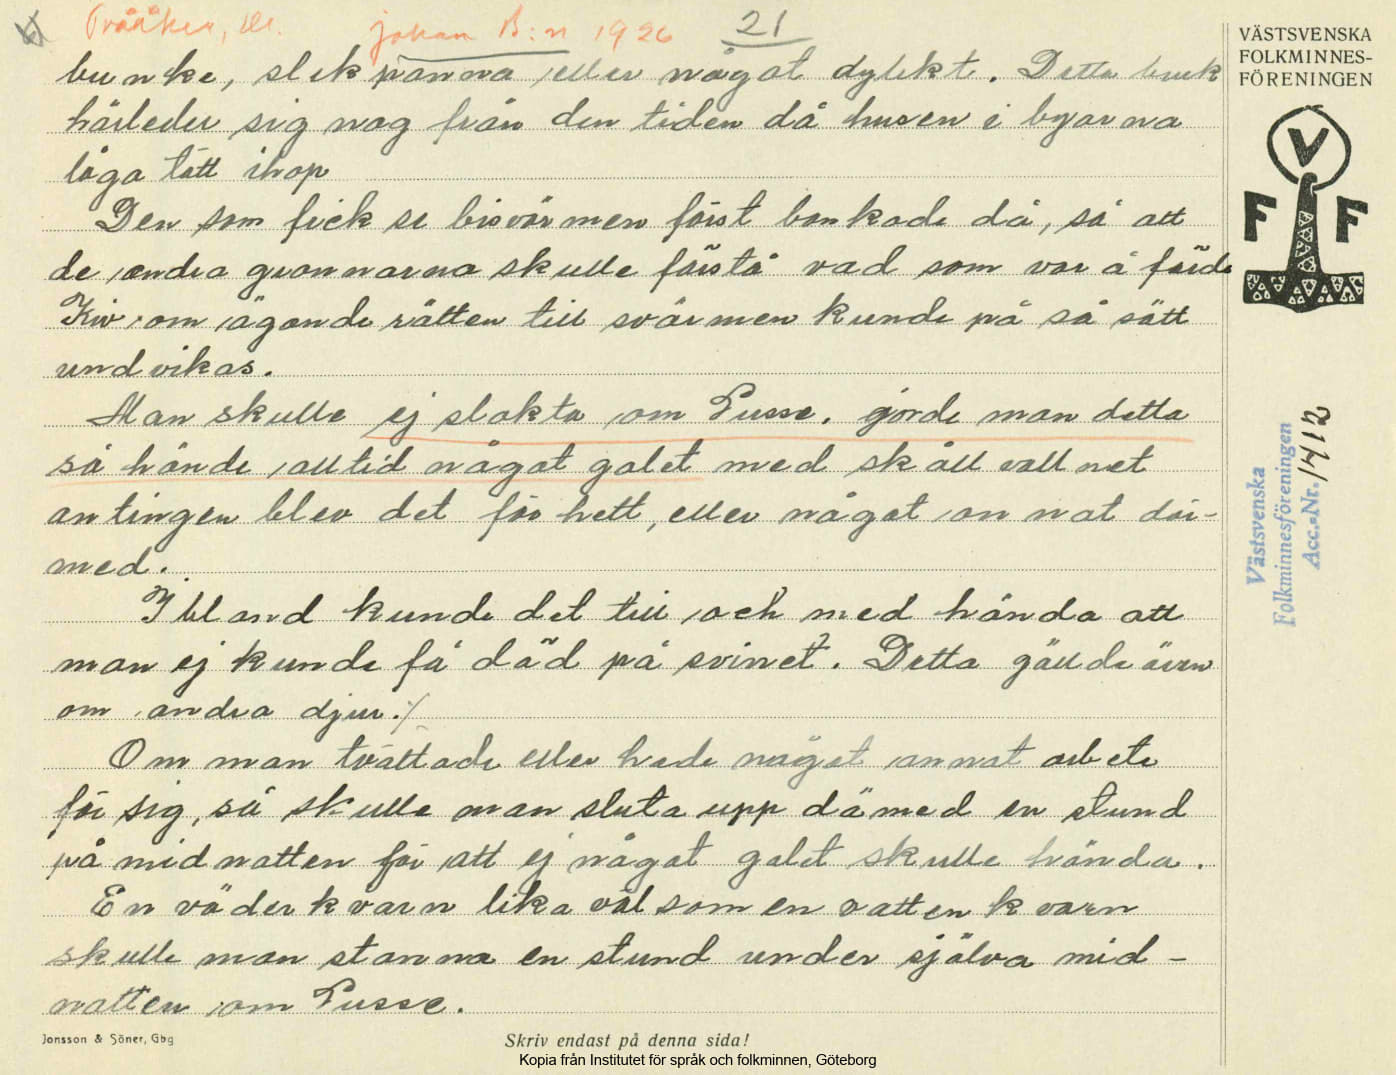 Tvååker, Vi. Johan B:n 1926 21
bunke, stekpanna eller något dylikt. Detta bruk
härleder sig nog från den tiden då husen i byarna
låga tätt ihop
Den som fick se bisvärmen först bankade då, så att
de andra grannarna skulle förstå vad som var å färde
Kiv om äganderätten till svärmen kunde på så sätt
undvikas.
Man skulle ej slakta om Tusse. gjorde man detta
så hände alltid något galet med skållvattnet
antingen blev det för hett, eller något annat där-
med.
Ibland kunde det till och med hända att
man ej kunde få död på svinet. Detta gällde även
om andra djur.
Om man tvättade eller hade något annat arbete
för sig, så skulle man sluta upp dämed en stund
på midnatten för att ej något galet skulle hända.
En väderkvarn lika väl som en vattenkvarn
skulle man stanna en stund under själva mid-
natten om Tusse.
Jonsson & Söner, Gbg
Skriv endast på denna sida!
Kopia från Institutet för språk och folkminnen, Göteborg
VÄSTSVENSKA
FOLKMINNES-
FÖRENINGEN
V
F F
Västsvenska
Folkminnesföreningen
Acc.-Nr. 1412